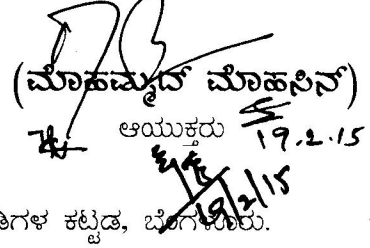 (ಮೊಹಮ್ಮದ್ ಮೊಹಸಿನ್)
ಆಯುಕ್ತರು 19.2.15
19/2/15
ಕಟ್ಟಡ, ಬೆಂಗಳೂರು.